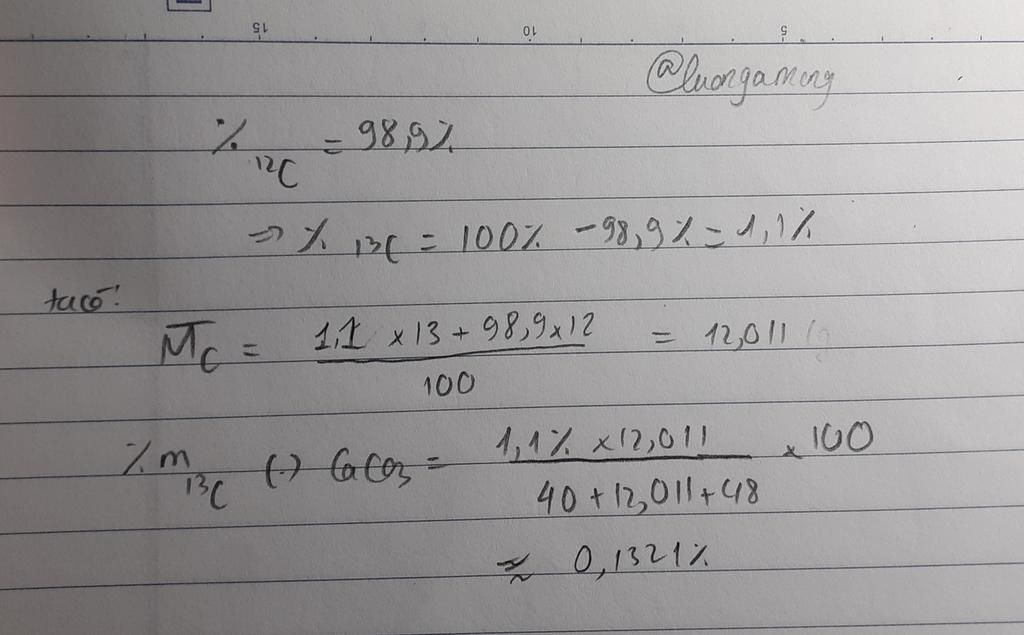 15 10 5
@luongaming
% 12C = 98,9%
=> % 13C = 100% - 98,9% = 1,1%
ta có:
M̅C = 1,1 x 13 + 98,9 x 12 / 100 = 12,011 (g
%m 13C (.) CaCO3 = 1,1% x 12,011 / 40 + 12,011 + 48 x 100
≈ 0,1321%